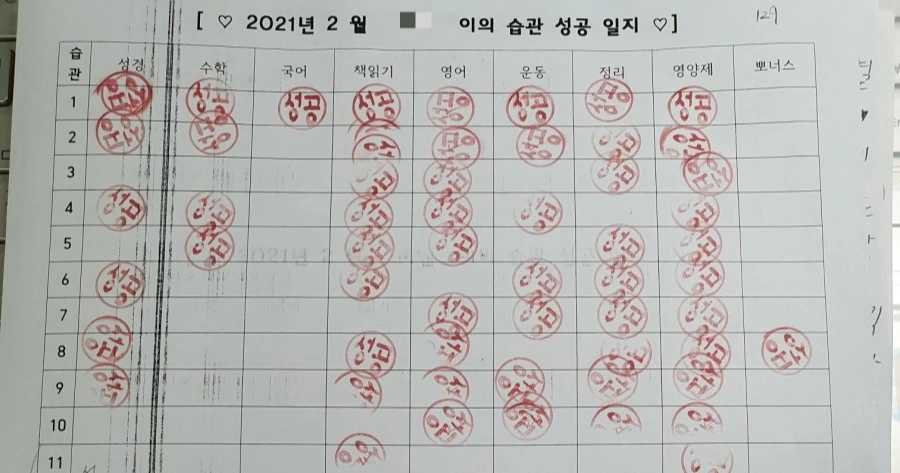 [ ♡ 2021년 2 월 이의 습관 성공 일지 ♡]
습관 성경 수학 국어 책읽기 영어 운동 정리 영양제 뽀너스
1 성공 성공 성공 성공 성공 성공 성공 성공
2 성공 성공 성공 성공 성공 성공 성공
3 성공 성공 성공 성공
4 성공 성공 성공 성공 성공 성공
5 성공 성공 성공 성공 성공
6 성공 성공 성공 성공 성공
7 성공 성공 성공 성공
8 성공 성공 성공 성공 성공 성공
9 성공 성공 성공 성공 성공 성공
10 성공 성공 성공 성공
11